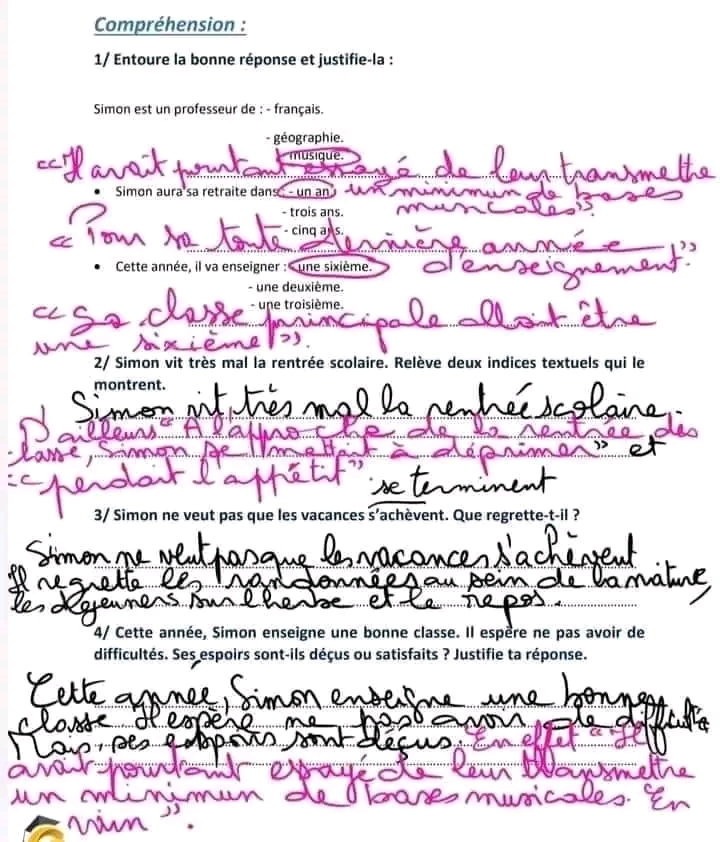 Compréhension :
1/ Entoure la bonne réponse et justifie-la :
Simon est un professeur de : - français.
- géographie.
- musique.
« Il avait pourtant essayé de leur transmettre
• Simon aura sa retraite dans : - un an.
un minimum de bases
- trois ans.
musicales ».
- cinq ans.
« Pour sa toute dernière année
d'enseignement ! »
• Cette année, il va enseigner : - une sixième.
- une deuxième.
- une troisième.
« Sa classe principale allait être
une sixième ! ».
2/ Simon vit très mal la rentrée scolaire. Relève deux indices textuels qui le
montrent.
Simon vit très mal la rentrée scolaire.
D'ailleurs "A l'approche de la rentrée des
classe, Simon se mettait à déprimer" et
"perdait l'appétit"
se terminent
3/ Simon ne veut pas que les vacances s'achèvent. Que regrette-t-il ?
Simon ne veut pas que les vacances s'achèvent
Il regrette les randonnées au sein de la nature,
les déjeuners sur l'herbe et le repos.
4/ Cette année, Simon enseigne une bonne classe. Il espère ne pas avoir de
difficultés. Ses espoirs sont-ils déçus ou satisfaits ? Justifie ta réponse.
Cette année, Simon enseigne une bonne
classe. Il espère ne pas avoir de difficultés
Mais, ses espoirs sont déçus. En effet "Il
avait pourtant essayé de leur transmettre
un minimum de bases musicales. En
vain".